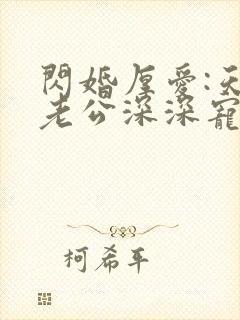 閃婚厚愛:天
老公深深寵
柯希平